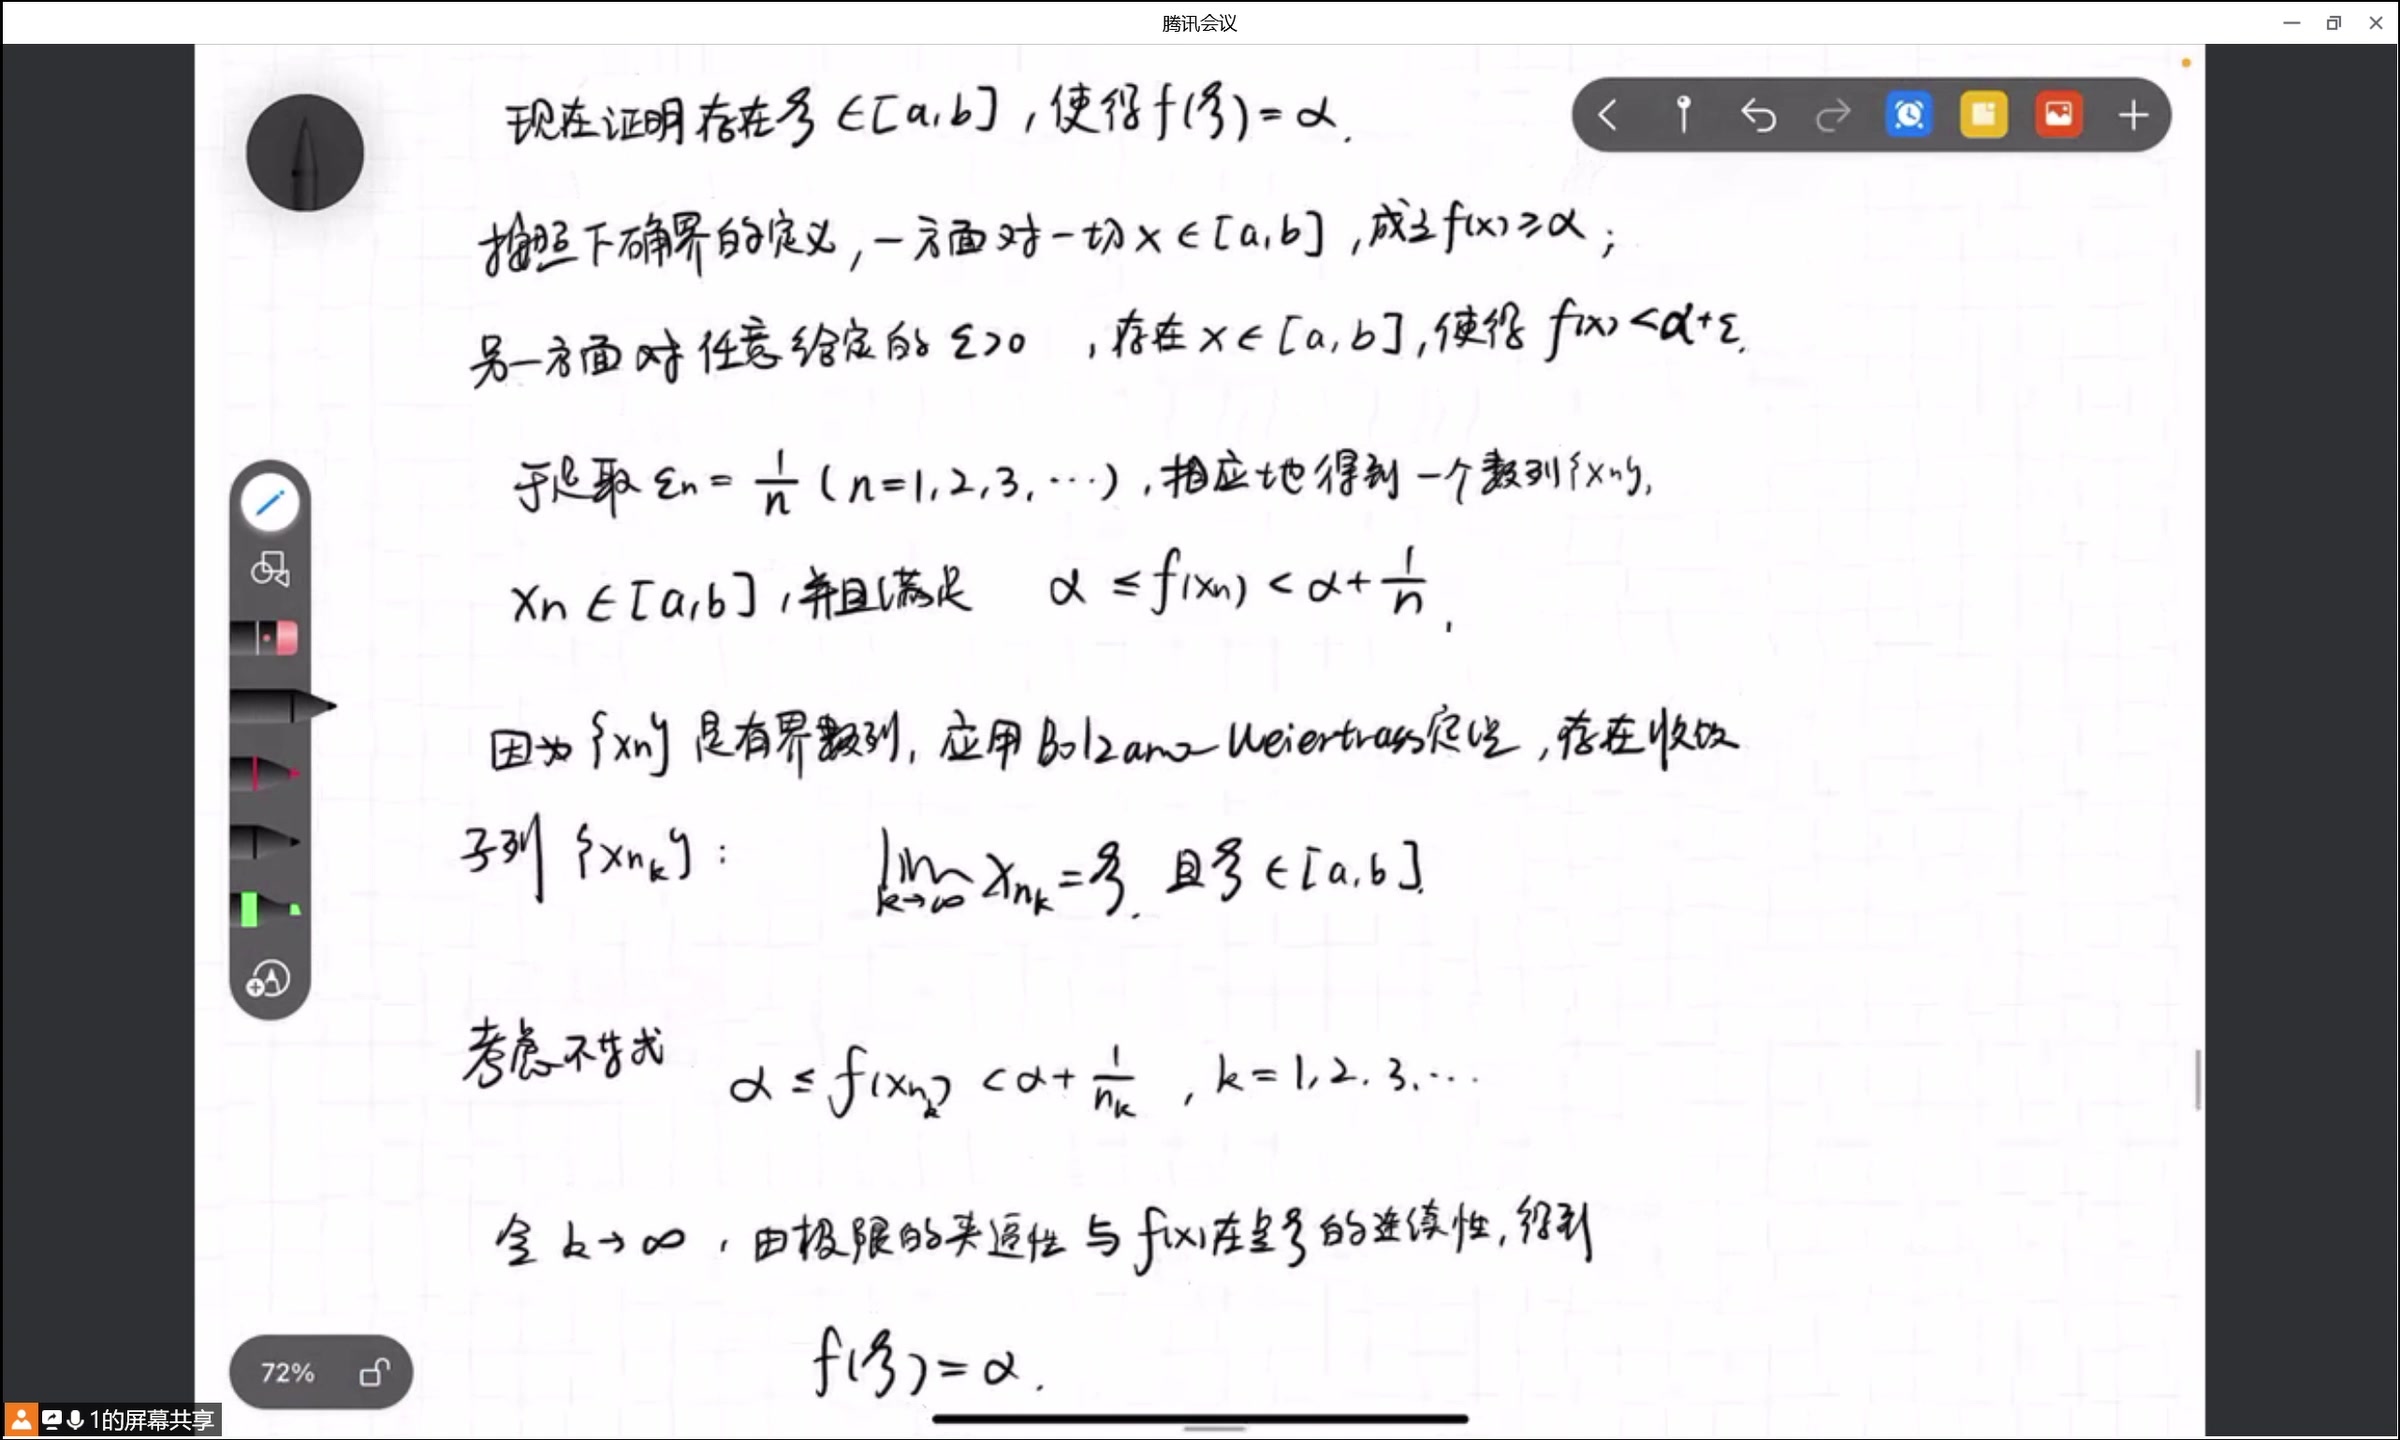 腾讯会议
现在证明存在ξ∈[a,b],使得f(ξ)=α.
按照下确界的定义,一方面对一切x∈[a,b],成立f(x)≥α;
另一方面对任意给定的ε>0,存在x∈[a,b],使得f(x)<α+ε.
于是取εn=1/n(n=1,2,3,…),相应地得到一个数列{xn},
xn∈[a,b],并且满足 α≤f(xn)<α+1/n,
因为{xn}是有界数列,应用Bolzano-Weiertrass定理,存在收敛
子列{xnk}: lim k→∞ xnk=ξ.且ξ∈[a,b].
考虑不等式 α≤f(xnk)<α+1/nk,k=1,2,3,…
令k→∞,由极限的夹逼性与f(x)在点ξ的连续性,得到
f(ξ)=α.
72%
1的屏幕共享